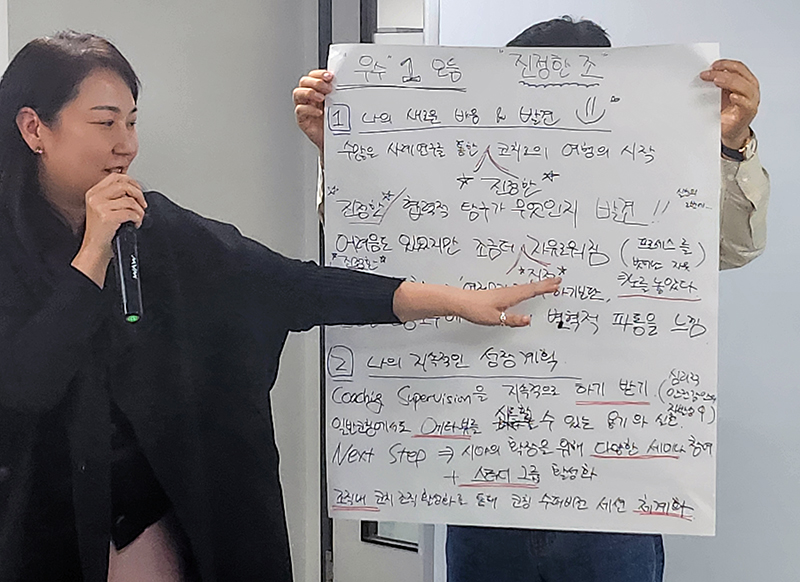 "우수" 1 모둠 "진정한 조"
1 나의 새로운 배움 & 발견
수많은 사례연구를 통한 코칭으로의 여행의 시작
*진정한*
*진정한* 협력적 탐구가 무엇인지 발견!!
어려움도 있었지만 조금더 자유로워짐 (프로세스를
*진정한* *진정*
하기보단, 놓았다
변혁적 파동을 느낌
2 나의 지속적인 성장계획
Coaching Supervision을 지속적으로 하기 받기. (심리적
일반코칭에서도 메타뷰를 시도할 수 있는 용기와 신뢰.
Next Step ⇒ 시야의 확장을 위해 다양한 세미나 참여
+ 스터디 그룹 활성화
조직내 코치 조직 활성화를 통해 코칭 수퍼비전 세션 체계화